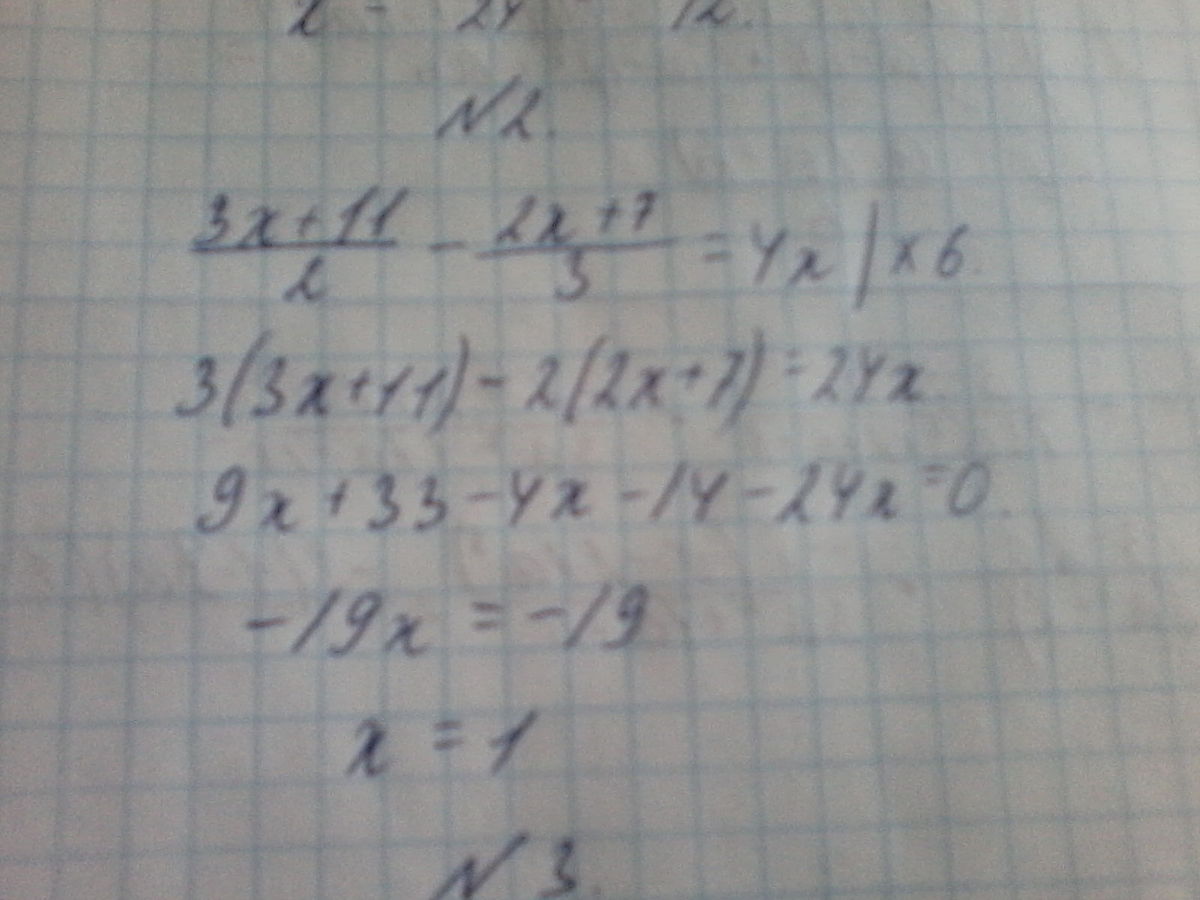 x = 24 12.
N2.
3x+11/2 - 2x+7/3 = 4x | ×6.
3(3x+11) - 2(2x+7) = 24x.
9x+33-4x-14-24x=0.
-19x = -19
x = 1
N3.